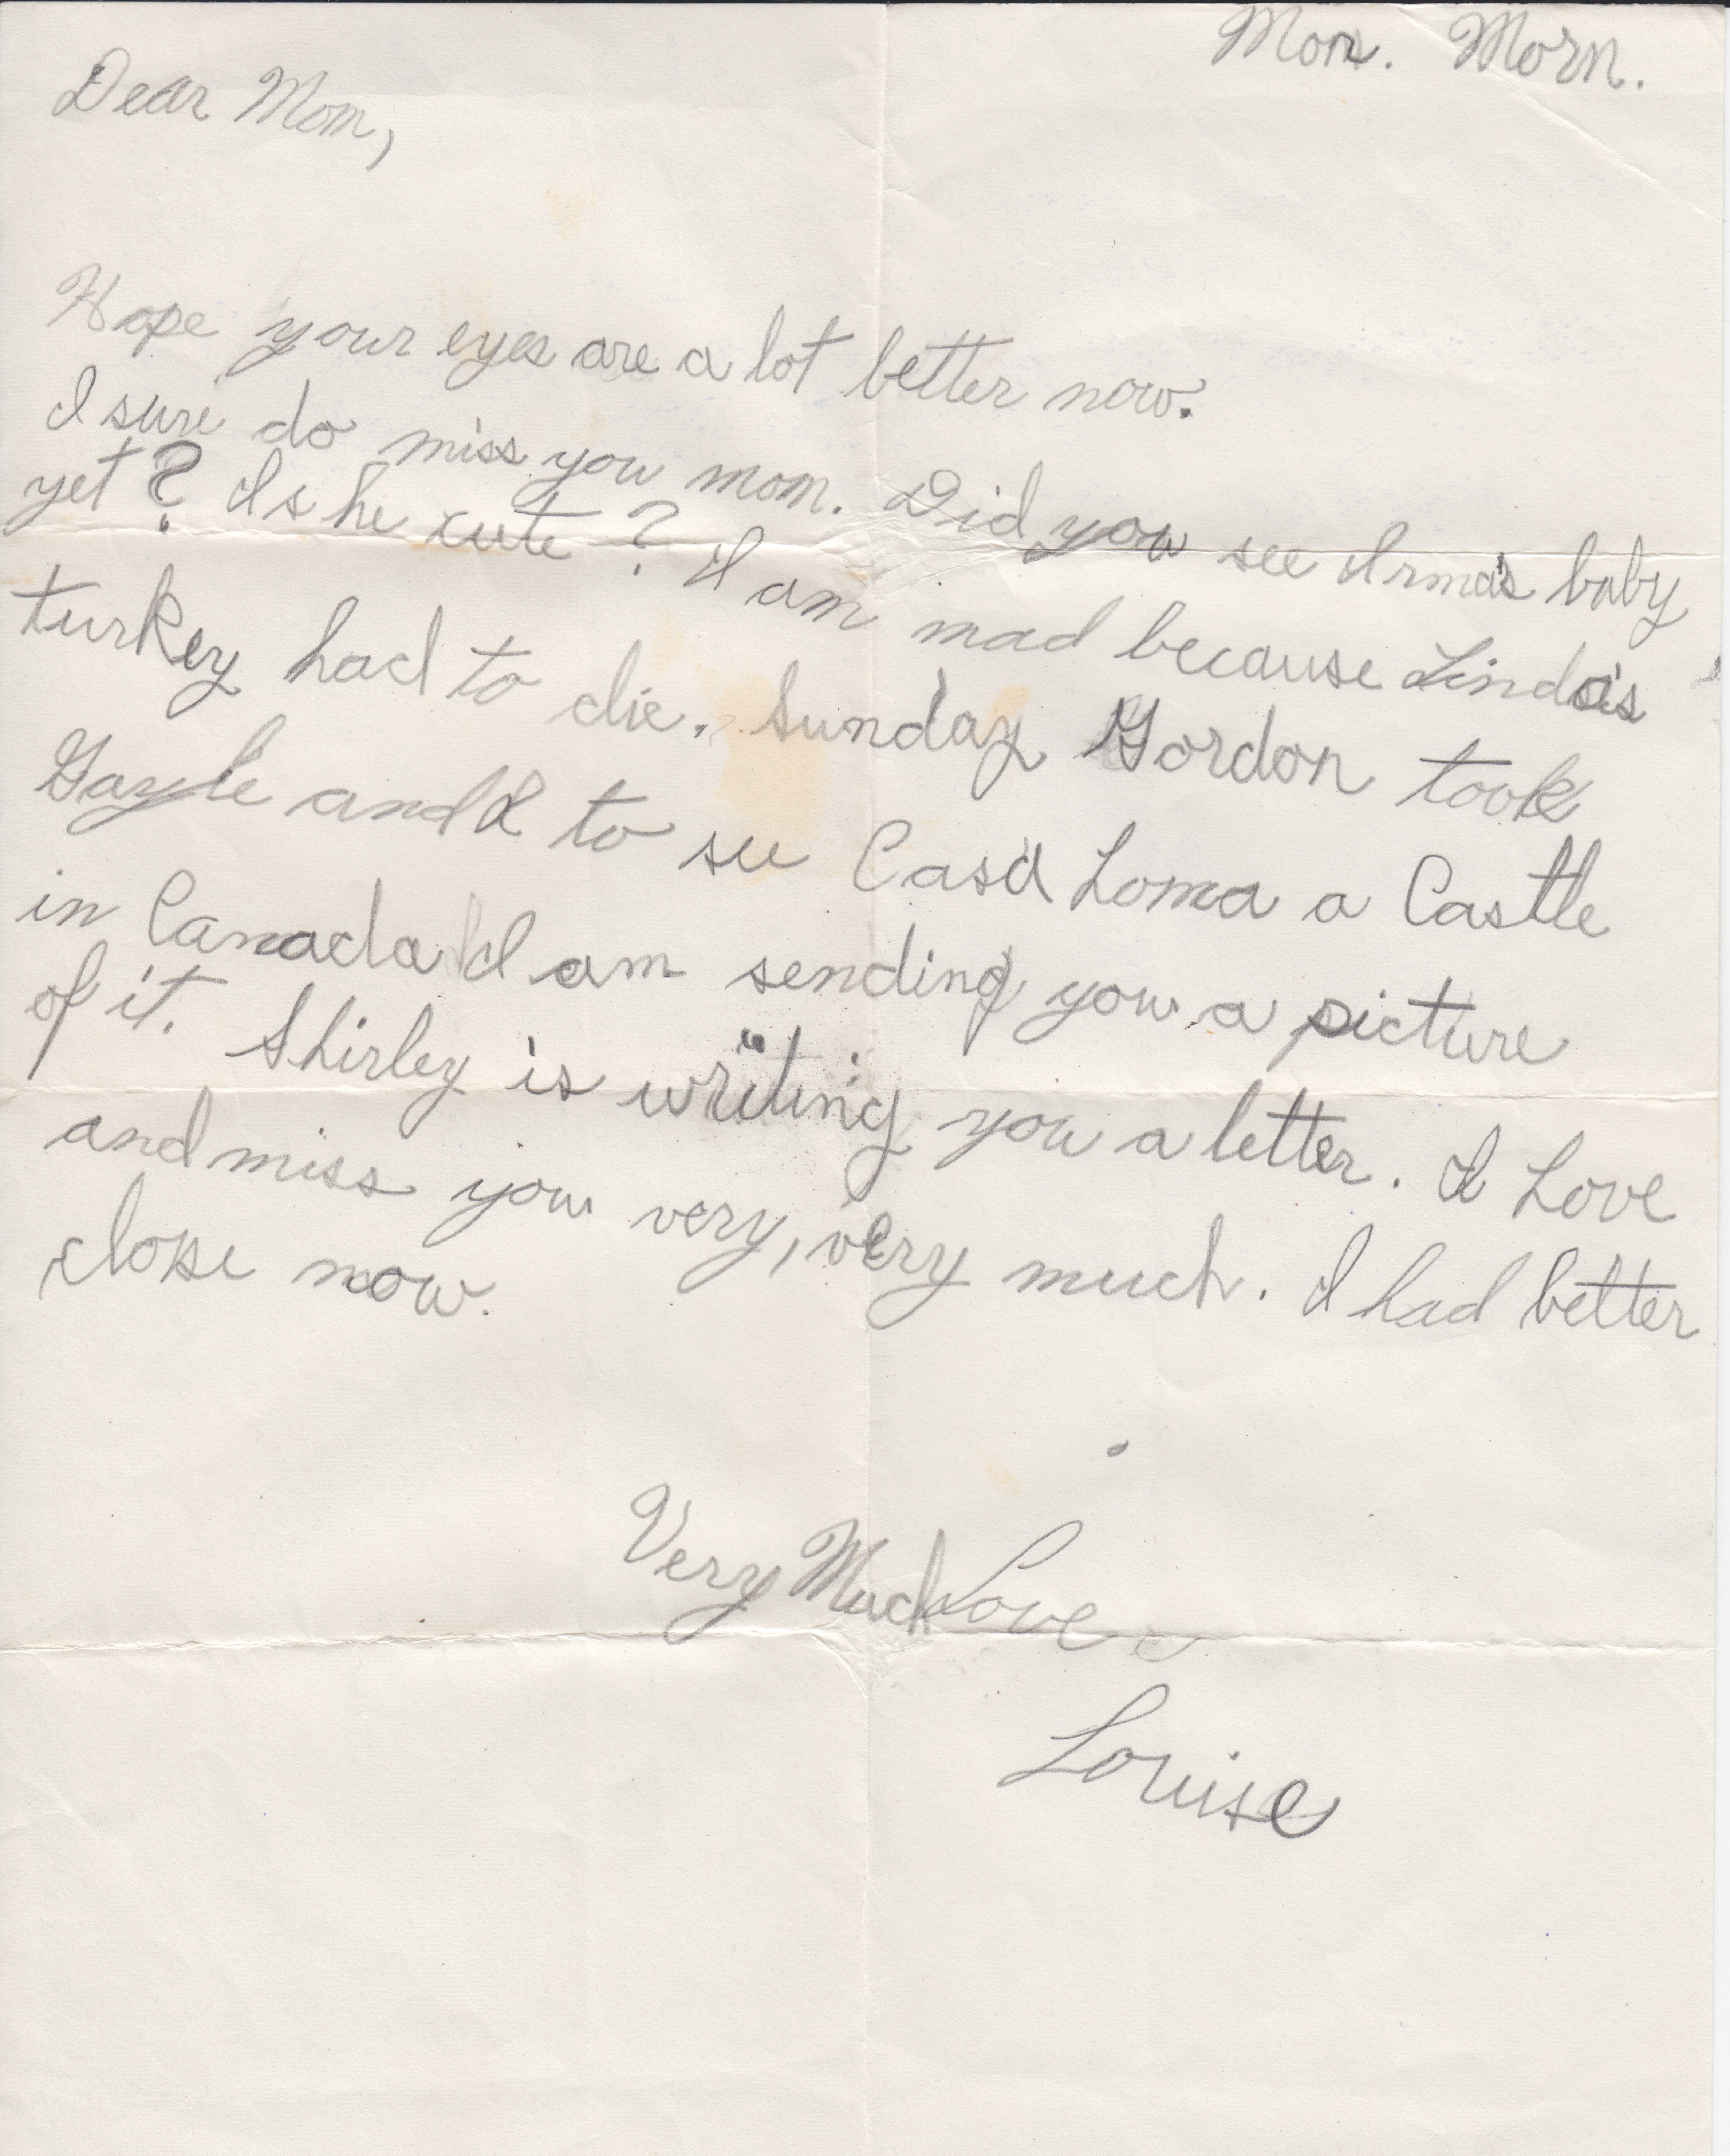 Mon. Morn.
Dear Mom,
Hope your eyes are a lot better now.
I sure do miss you mom. Did you see Irma's baby
yet? Is he cute? I am mad because Linda's
turkey had to die. Sunday Gordon took
Gayle and I to see Casa Loma a Castle
in Canada I am sending you a picture
of it. Shirley is writing you a letter. I Love
and miss you very, very much. I had better
close now.
Very Much Love
Louise